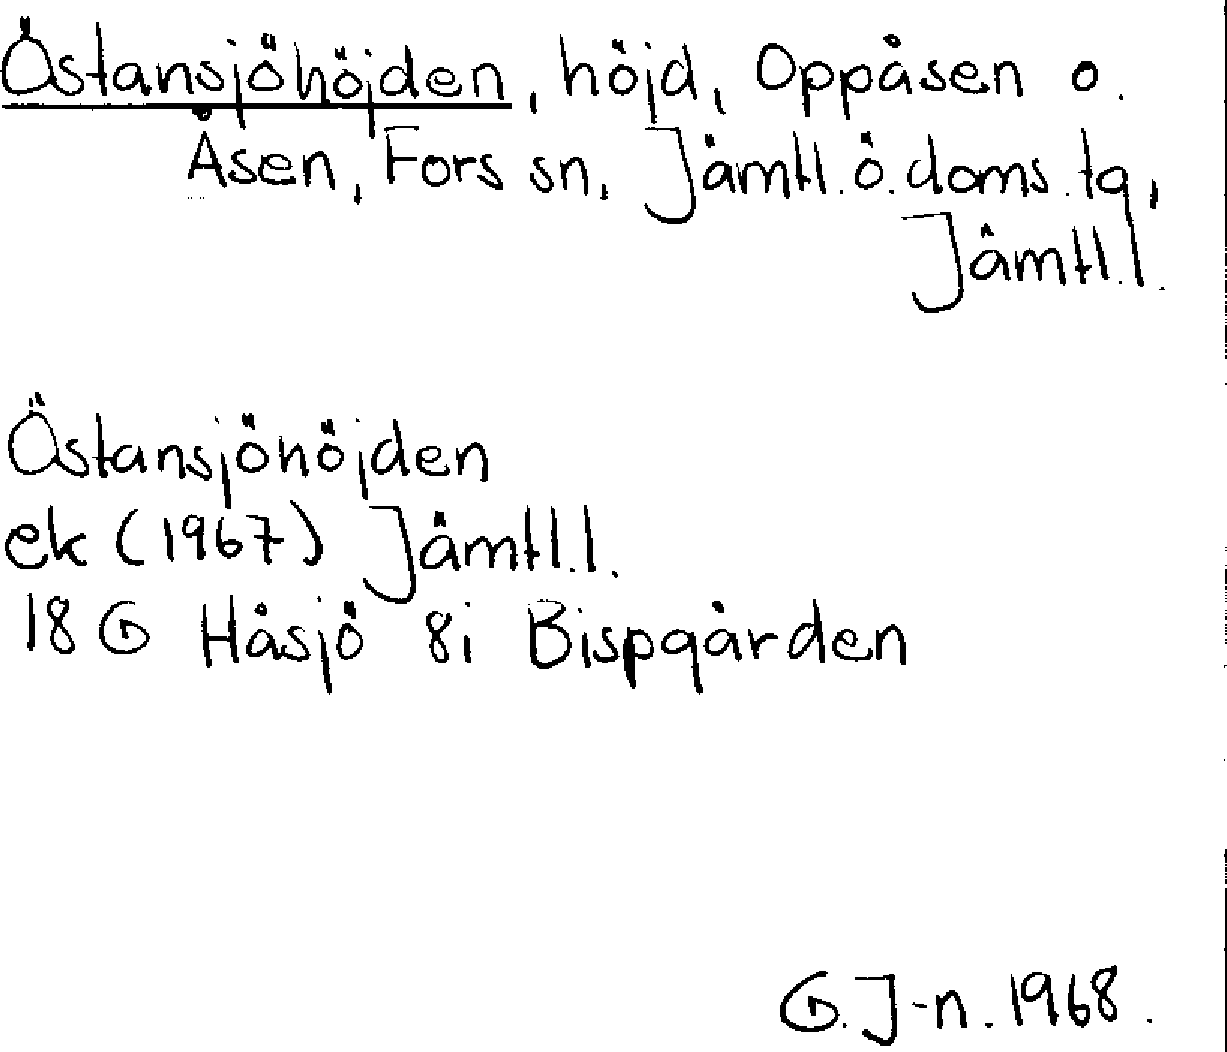 Östansjöhöjden, höjd, Oppåsen o.
Åsen, Fors sn, Jämtl. ö. doms. tg,
Jämtl. l.
Östansjöhöjden
ek (1967) Jämtl. l.
18 G Håsjö 8i Bispgården
G. J-n. 1968.